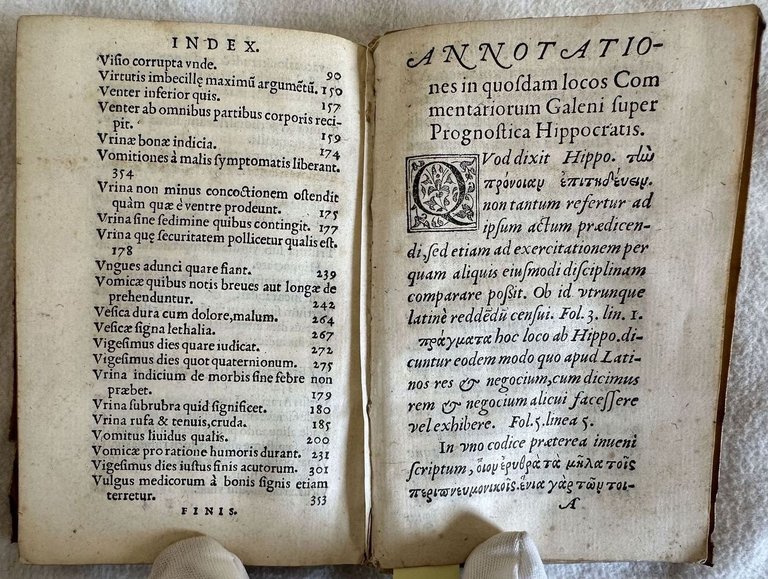 INDEX.
Visio corrupta vnde. 90
Virtutis imbecillę maximū argumētū. 150
Venter inferior quis. 157
Venter ab omnibus partibus corporis reci-
pit. 159
Vrinæ bonæ indicia. 174
Vomitiones à malis symptomatis liberant.
354
Vrina non minus concoctionem ostendit
quàm quæ è ventre prodeunt. 175
Vrina sine sedimine quibus contingit. 177
Vrina quę securitatem pollicetur qualis est.
178
Vngues adunci quare fiant. 239
Vomicæ quibus notis breues aut longæ de
prehenduntur. 242
Vesica dura cum dolore, malum. 264
Vesicæ signa lethalia. 267
Vigesimus dies quare iudicat. 272
Vigesimus dies quot quaternionum. 275
Vrina indicium de morbis sine febre non
præbet. 179
Vrina subrubra quid significet. 180
Vrina rufa & tenuis, cruda. 185
Vomitus liuidus qualis. 200
Vomicæ pro ratione humoris durant. 231
Vigesimus dies iustus finis acutorum. 301
Vulgus medicorum à bonis signis etiam
terretur. 353
FINIS.
ANNOTATIO-
nes in quosdam locos Com
mentariorum Galeni super
Prognostica Hippocratis.
QVod dixit Hippo. τὼ
πρόνοιαν ἐπιτηδεύειν.
non tantum refertur ad
ipsum actum prædicen-
di, sed etiam ad exercitationem per
quam aliquis eiusmodi disciplinam
comparare poßit. Ob id vtrunque
latinè reddēdū censui. Fol. 3. lin. 1.
πράγματα hoc loco ab Hippo. di-
cuntur eodem modo quo apud Lati-
nos res & negocium, cum dicimus
rem & negocium alicui facessere
vel exhibere. Fol. 5. linea 5.
In vno codice præterea inueni
scriptum, οἷον ἐρυθρὰ τὰ μῆλα τοῖς
περιπνευμονικοῖς. ἔνια γὰρ τῶν τοι-
A